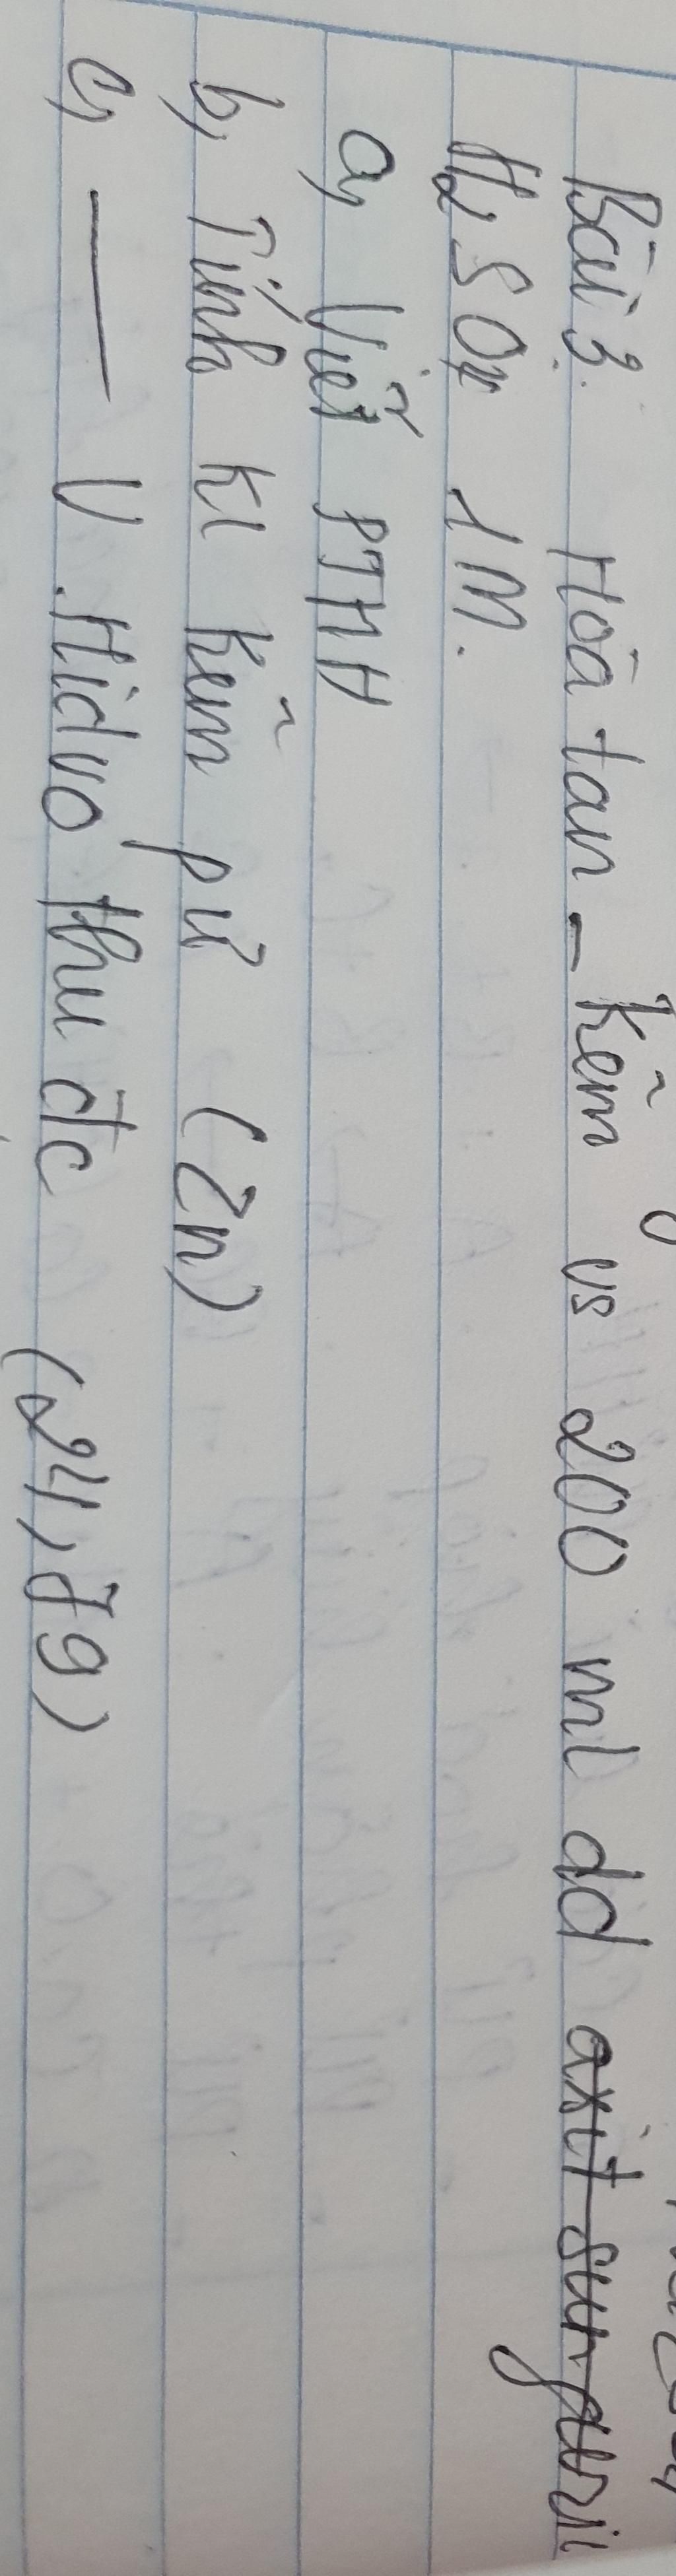 Bài 3. Hoà tan - kẽm vs 200 ml dd axit sunfuric
H2SO4 1M.
a, Viết PTHH
b, Tính kl kẽm pứ (Zn)
c, — V. Hidro thu đc (24,79)